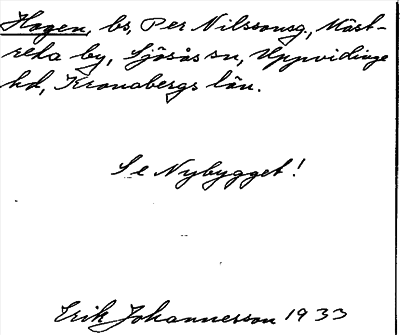 Hagen, bs, Per Nilssonsg., Mäst-
reka by, Sjösås sn, Uppvidinge
hd, Kronobergs län.
Se Nybygget!
Erik Johannesson 1933